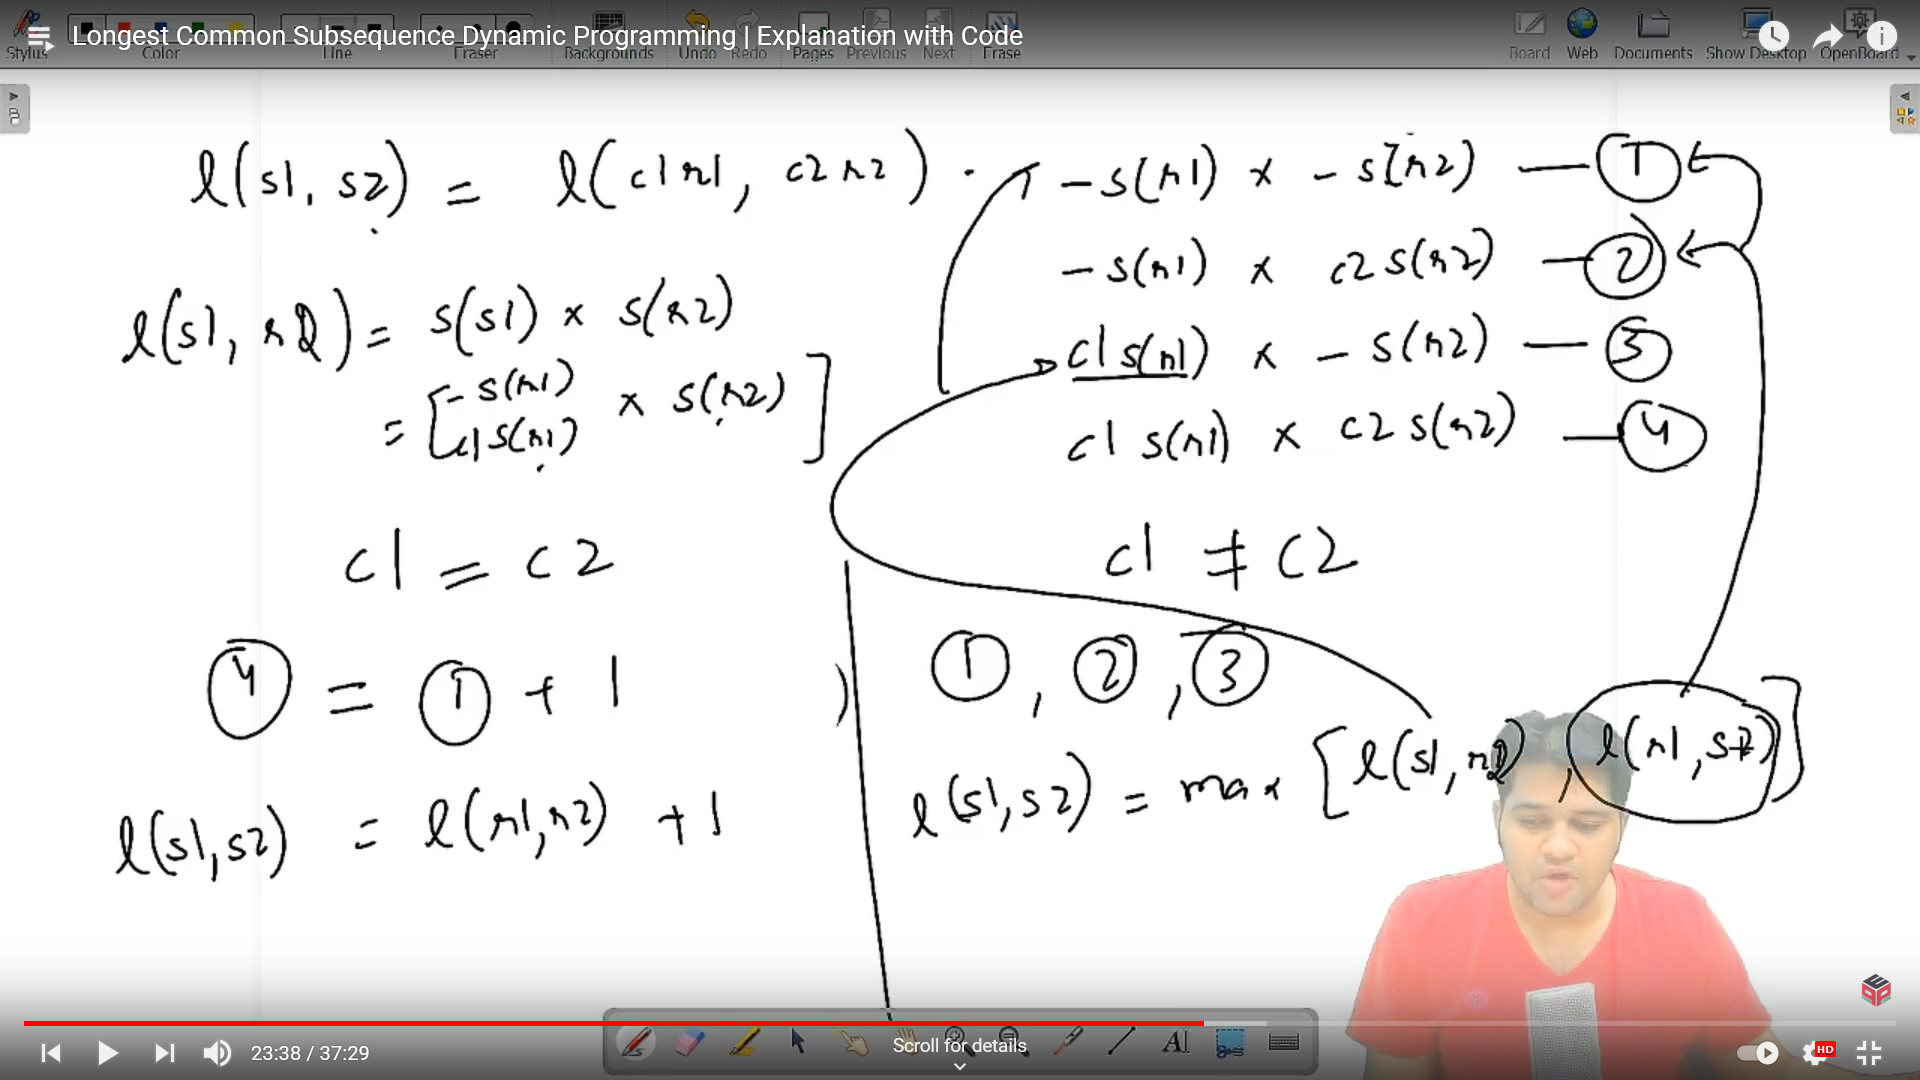 Longest Common Subsequence Dynamic Programming | Explanation with Code
Stylus Color Line Eraser Backgrounds Undo Redo Pages Previous Next Erase Board Web Documents Show Desktop OpenBoard
l(s1, s2) = l(c1r1, c2r2) .
- s(r1) x - s(r2) — 1
- s(r1) x c2 s(r2) — 2
c1 s(r1) x - s(r2) — 3
c1 s(r1) x c2 s(r2) — 4
l(s1, r2) = s(s1) x s(r2)
= [ - s(r1)
c1 s(r1) x s(r2) ]
c1 = c2
4 = 1 + 1
l(s1,s2) = l(r1,r2) + 1
c1 ≠ c2
1 , 2 , 3
l(s1,s2) = max [ l(s1,r2) , l(r1,s2) ]
23:38 / 37:29
Scroll for details
HD